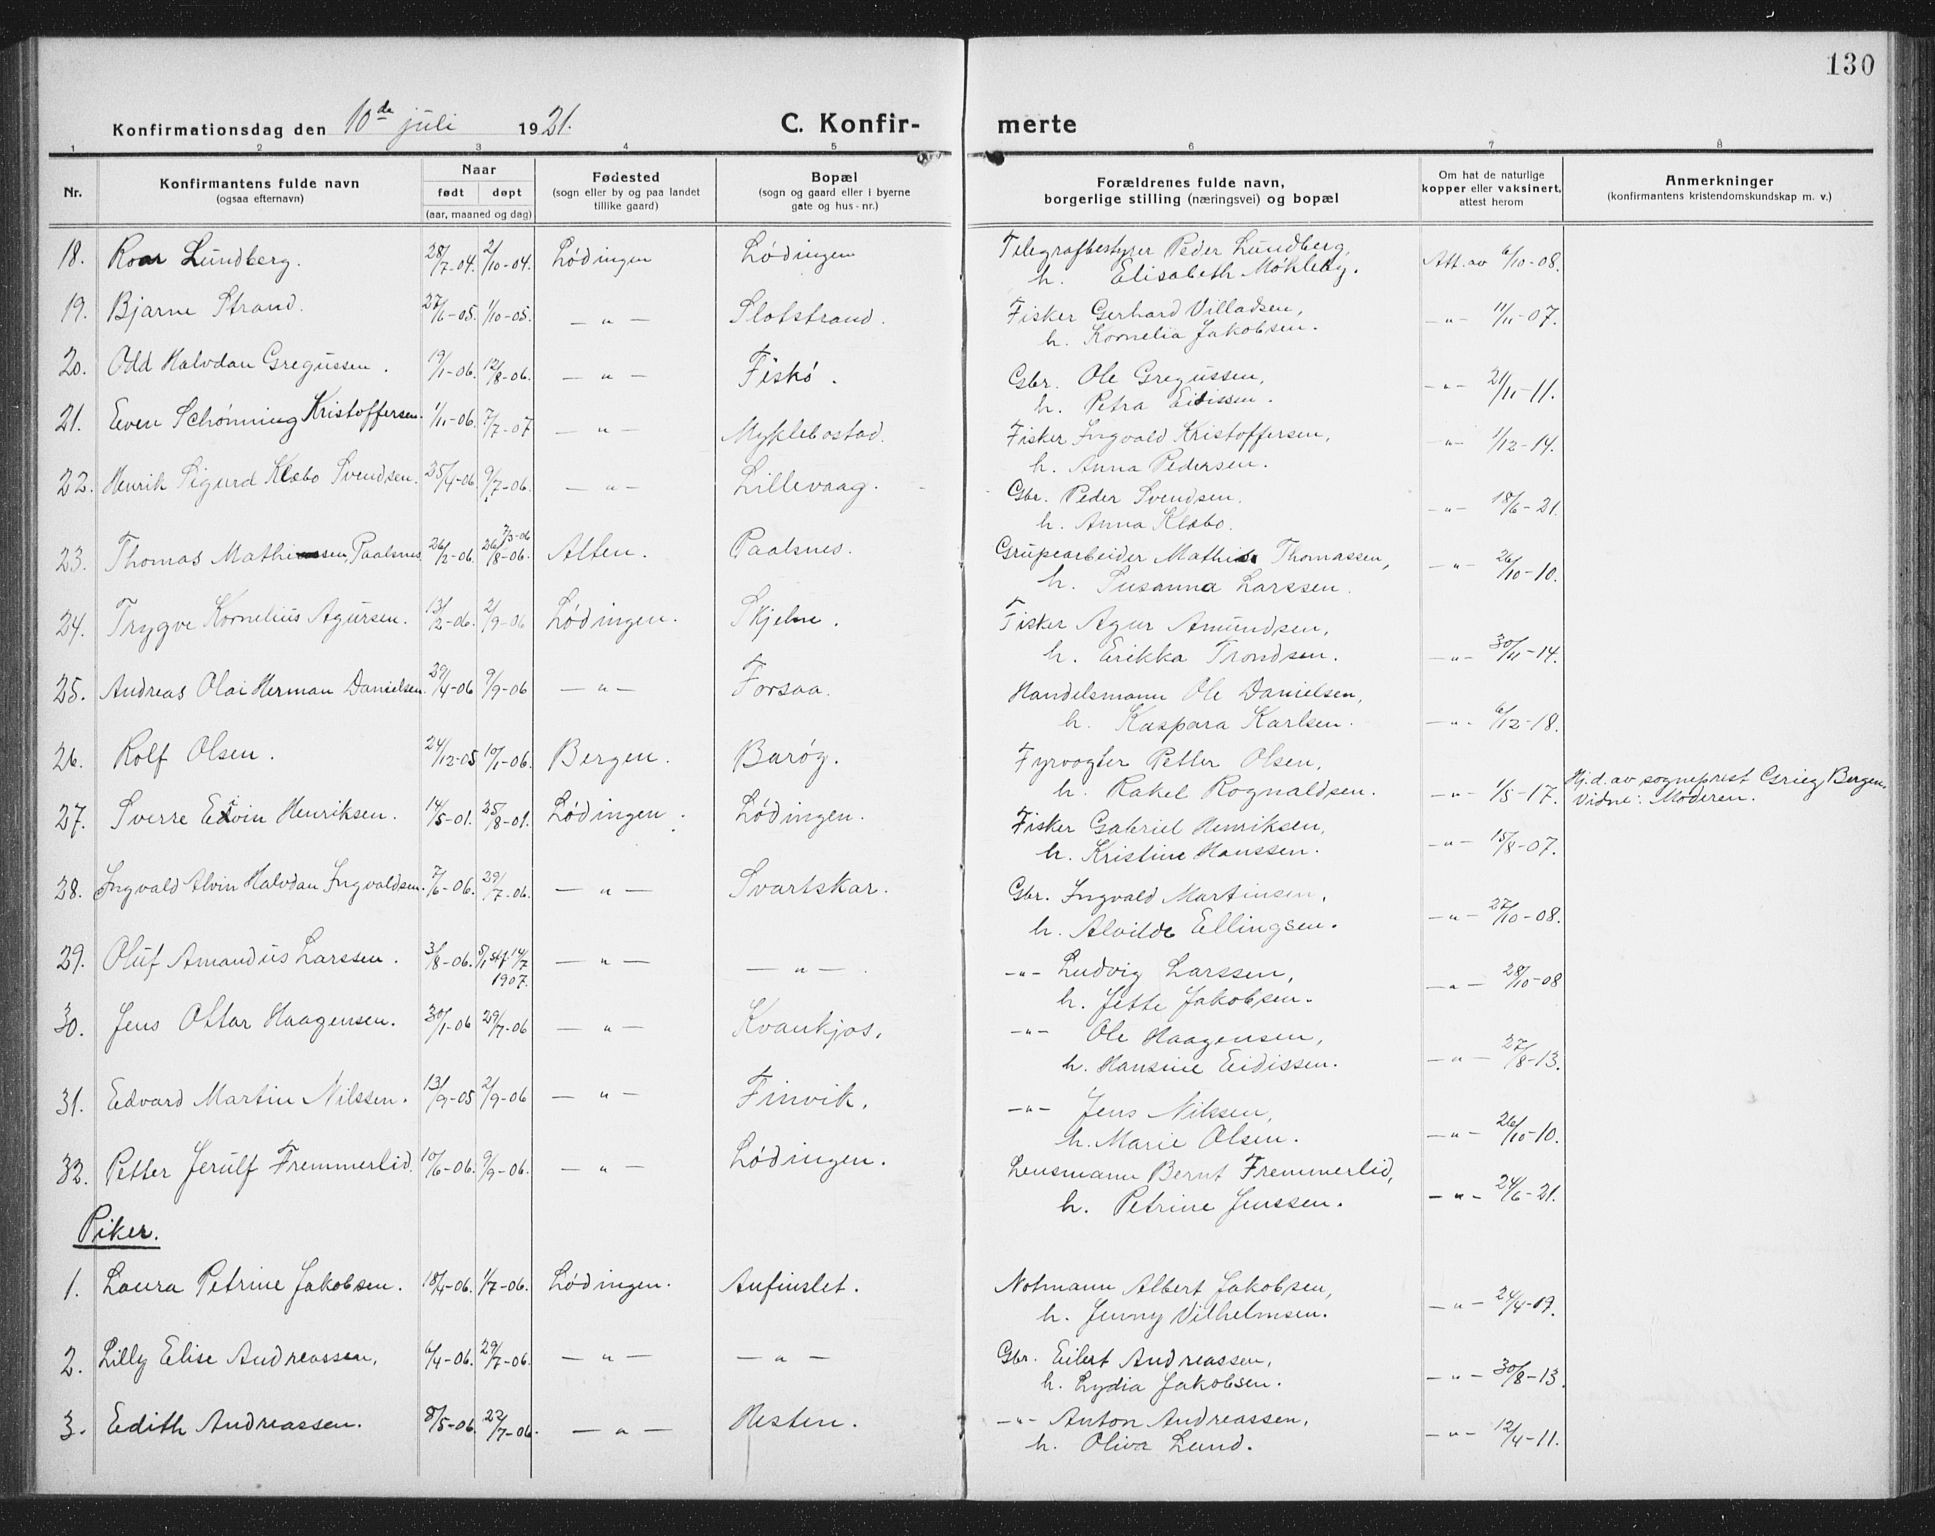 130
Konfirmationsdag den 10de juli 1921. C. Konfirmerte
1 2 3 4 5 6 7 8
Nr. Konfirmantens fulde navn (ogsaa efternavn) Naar født døpt (aar, maaned og dag) Fødested (sogn eller by og paa landet tillike gaard) Bopæl (sogn og gaard eller i byerne gate og hus-nr.) Forældrenes fulde navn, borgerlige stilling (næringsvei) og bopæl Om hat de naturlige kopper eller vaksinert, attest herom Anmerkninger (konfirmantens kristendomskundskap m. v.)
18. Roar Lundberg. 28/7-04. 2/10-04. Lødingen Lødingen Telegrafbestyrer Peder Lundberg, Att. av 6/10-08.
h. Elisabeth Møkleby.
19. Bjarne Strand. 27/6-05. 1/10-05. —„— Slotstrand. Fisker Gerhard Villadsen, —„— 11/11-07.
h. Kornelia Jakobsen.
20. Odd Halvdan Gregussen. 19/1-06. 12/8-06. —„— Fiskø. Gbr. Ole Gregussen, —„— 21/11-11.
h. Petra Eidissen.
21. Even Schønning Kristoffersen. 1/11-06. 7/7-07 —„— Myklebostad. Fisker Ingvald Kristoffersen, —„— 1/12-14.
h. Anna Pedersen.
22. Henrik Sigurd Klæbo Svendsen. 25/4-06 9/7-06. —„— Lillevaag. Gbr. Peder Svendsen. —„— 18/6-21.
h. Anna Klæbo.
23. Thomas Paalsnes 26/2-06. 7/3-06 26/8-06. Alten. Paalsnes. Grupearbeider Mathis Thomassen, —„— 26/10-10.
h. Susanna Larssen.
24. Trygve Kornelius Agursen. 13/2-06. 2/9-06 Lødingen. Skjelne. Fisker Agur Amundsen,
h. Erikka Trondsen. —„— 30/11-14.
25. Andreas Olai Herman Danielsen. 29/4-06 9/9-06 —„— Forsaa. Handelsmann Ole Danielsen,
h. Kaspara Karlsen. —„— 6/12-18.
26. Rolf Olsen. 24/12-05 10/1-06. Bergen. Barøy. Fyrvogter Petter Olsen,
h. Rakel Rognaldsen. —„— 1/5-17. Hj.d. av sogneprest Grieg, Bergen. Vidne: Moderen.
27. Sverre Edvin Henriksen. 14/5-01. 25/8-01. Lødingen. Lødingen. Fisker Gabriel Henriksen,
h. Kristine Hanssen. —„— 15/8-07.
28. Ingvald Alvin Halvdan Ingvaldsen. 7/6-06. 29/7-06. —„— Svartskar. Gbr. Ingvald Martinsen,
h. Alvilde Ellingsen. —„— 27/10-08.
29. Oluf Amandus Larssen. 3/8-06. 14/7 1907. —„— —„— —„— Ludvig Larssen, —„— 28/10-08
h. Jette Jakobsen.
30. Jens Ottar Haagensen. 30/1-06 29/7-06 —„— Kvankjos. —„— Ole Haagensen,
h. Hansine Eidissen. —„— 27/8-13.
31. Edvard Martin Nilssen. 13/9-05 2/9-06 —„— Finvik. —„— Jens Nilssen,
h. Marie Olsen. —„— 26/10-10.
32. Petter Jerulf Fremmerlid. 10/6-06. 9/9-06. —„— Lødingen. Lensmann Bernt Fremmerlid,
h. Petrine Jenssen. —„— 24/6-21.
Piker.
1. Laura Petrine Jakobsen. 18/4-06. 1/7-06. Lødingen. Anfinslet. Notmann Albert Jakobsen,
h. Jenny Vilhelmsen. —„— 24/4-19.
2. Lilly Elise Andreassen. 6/4-06. 29/7-06. —„— —„— Gbr. Eilert Andreassen,
h. Lydia Jakobsen. —„— 30/8-13.
3. Edith Andreassen. 8/5-06. 22/7-06. —„— Hesten. —„— Anton Andreassen,
h. Oliva Lund. —„— 12/4-11.